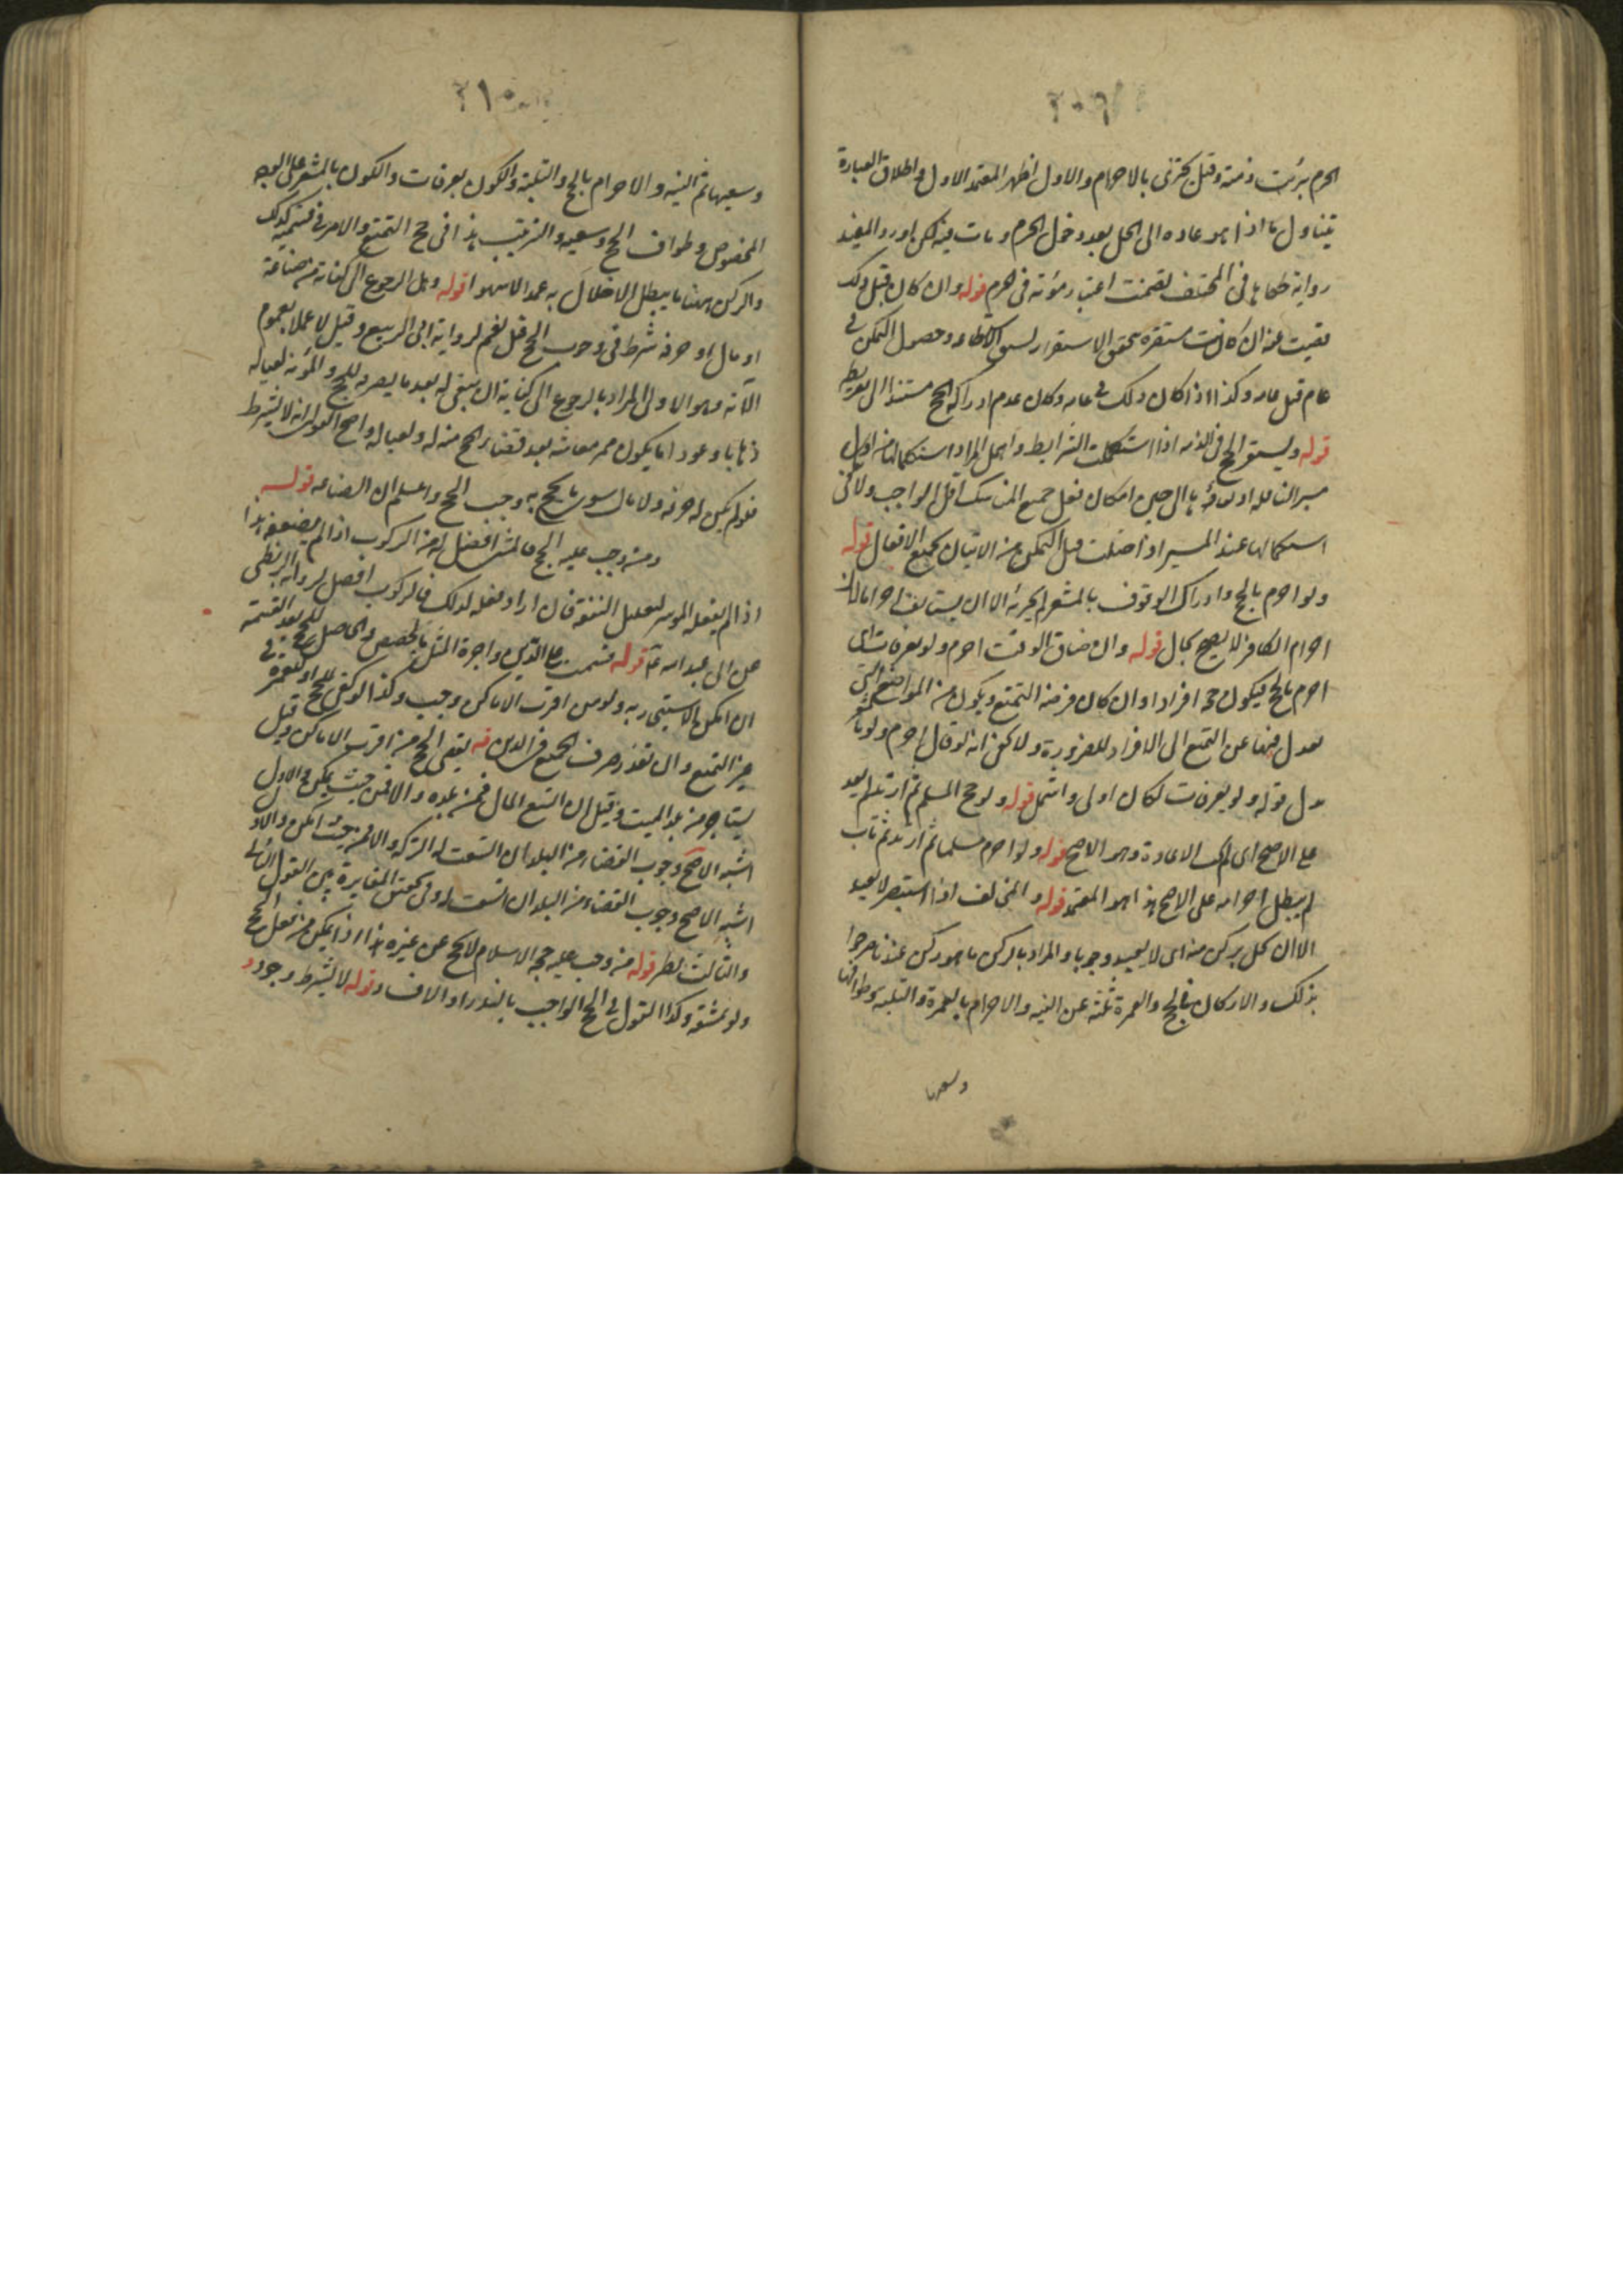 ٢٠٩
الحرم برئت ذمته وقيل يجتزى بالاحرام والاول اظهر المعتمد الاول واطلاق العبارة
يتناول ما اذا هو عاده الى الحل بعد دخول الحرم ومات فيه لكن اورد المفيد
رواية حكاها فى المختلف تضمنت اعتبار موته فى الحرم قوله وان كان قبل ذلك
قضيت عنه ان كانت مستقرة يتحقق الاستقرار بسبق الاستطاعة وحصول التمكن فى
عام قبل عامه وكذا اذا كان ذلك فى عامه وكان عدم ادراكه الحج مستندا الى تفريطه
قوله ويستقر الحج فى الذمه اذا استكملت الشرايط واهمل المراد استكمالها من اول
سير القافلة او الرفقة الى حين امكان فعل جميع المناسك اقل الواجب ولا يكفى
استكمالها عند المسير اذا اختلت قبل التمكن من الاتيان بجميع الافعال قوله
ولو احرم بالحج وادراك الوقوف بالمشعر لم يجزئه الا ان يستانف احراما لان
احرام الكافر لا يصح بحال قوله وان ضاق الوقت احرم ولو بعرفات اى
احرم بالحج فيكون حجه افرادا وان كان فرضه التمتع ويكون من المواضع التى
يعدل فيها عن التمتع الى الافراد للضرورة ولا يخفى انه لو قال احرم ولو بالمشعر
بدل قوله ولو بعرفات لكان اولى واشمل قوله ولو حج المسلم ثم ارتد لم يعد
على الاصح اى لم يجب الاعادة وهو الاصح قوله ولو احرم مسلما ثم ارتد ثم تاب
لم يبطل احرامه على الاصح هذا هو المعتمد قوله والمخالف اذا استبصر لا يعيد
الا ان يخل بركن منه اى لا يعيد وجوبا والمراد بالركن ما هو ركن عندنا صرحوا
بذلك والاركان فى الحج والعمرة ثلثة عشر النيه والاحرام بالعمرة والتلبيه وطوافها
وسعيها
٢١٠
وسعيها ثم النيه والاحرام بالحج والتلبية والكون بعرفات والكون بالمشعر على الوجه
المخصوص وطواف الحج وسعيه والترتيب هذا فى حج التمتع والامر فى قسيميه كذلك
والركن هنا ما يبطل الاخلال به عمدا لا سهوا قوله وهل الرجوع الى كفاية من صناعة
او مال او حرفة شرط فى وجوب الحج قيل نعم لرواية ابى الربيع وقيل لا عملا بعموم
الآية وهو الاولى المراد بالرجوع الى كفاية ان يبقى له بعد ما يصرفه للحج والمؤنة لعياله
ذهابا وعودا ما يكون ممر معاشه بعد قضاء الحج منه له ولعياله واصح القولين انه لا يشترط
فلو لم يكن له حرفة ولا مال سوى ما يحج به وجب الحج واعلم ان الصناعه قوله
ومن وجب عليه الحج فالمشى افضل له من الركوب اذا لم يضعفه هذا
اذا لم يفعله الموسر لتقليل النفقه فان اراد فعله لذلك فالركوب افضل لرواية البزنطى
عن ابى عبد الله ع قوله قسمت على الدين واجرة المثل بالحصص والحاصل للحج بعد القسمة
ان امكن الاستيجار به ولو من اقرب الاماكن وجب وكذا لو كفى للحج او للعمرة فى
حيز التمتع وان تعذر صرف الجميع فى الدين قه يقضى الحج من اقرب الاماكن وقيل
يستاجر من بلد الميت وقيل ان اتسع المال فمن بلده والا فمن حيث يمكن والاول
اشبه الاصح وجوب القضاء من البلد ان اتسعت له التركة والا فمن حيث امكن والاول
اشبه الاصح وجوب القضاء من البلد ان اتسعت له وفى تحقق المغايرة بين القول الثانى
والثالث نظر قوله من وجب عليه حجة الاسلام لا يحج عن غيره هذا اذا يمكن من فعل الحج
ولو بمشقة وكذا القول فى الحج الواجب بالنذر او الافساد وقوله لا يشترط وجود